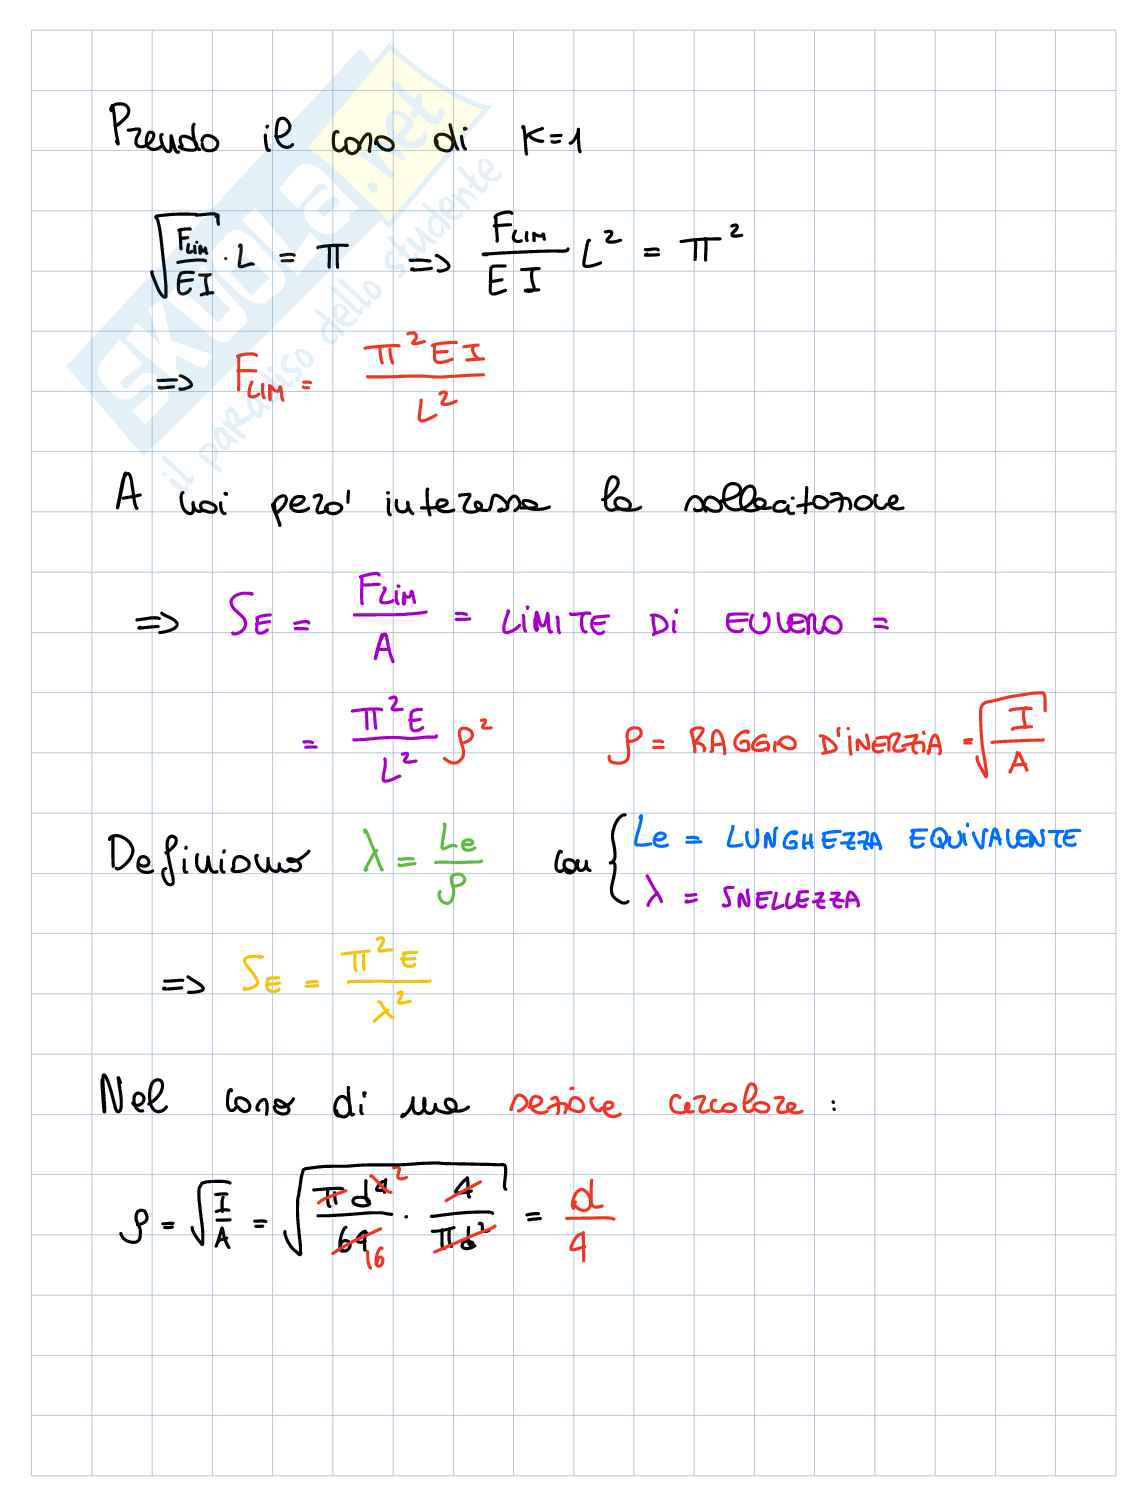 SKUOLA.net
il paradiso dello studente
Prendo il caso di K=1
√(F_LIM/EI) · L = π => F_LIM/EI L² = π²
=> F_LIM = π²EI/L²
A noi pero' interessa la sollecitazione
=> S_E = F_LIM/A = LIMITE DI EULERO =
= π²E/L² ρ² ρ = RAGGIO D'INERZIA = √(I/A)
Definiamo λ = Le/ρ con { Le = LUNGHEZZA EQUIVALENTE
λ = SNELLEZZA
=> S_E = π²E/λ²
Nel caso di una sezione circolare :
ρ = √(I/A) = √(πd⁴/64 · 4/πd²) = d/4
2
16